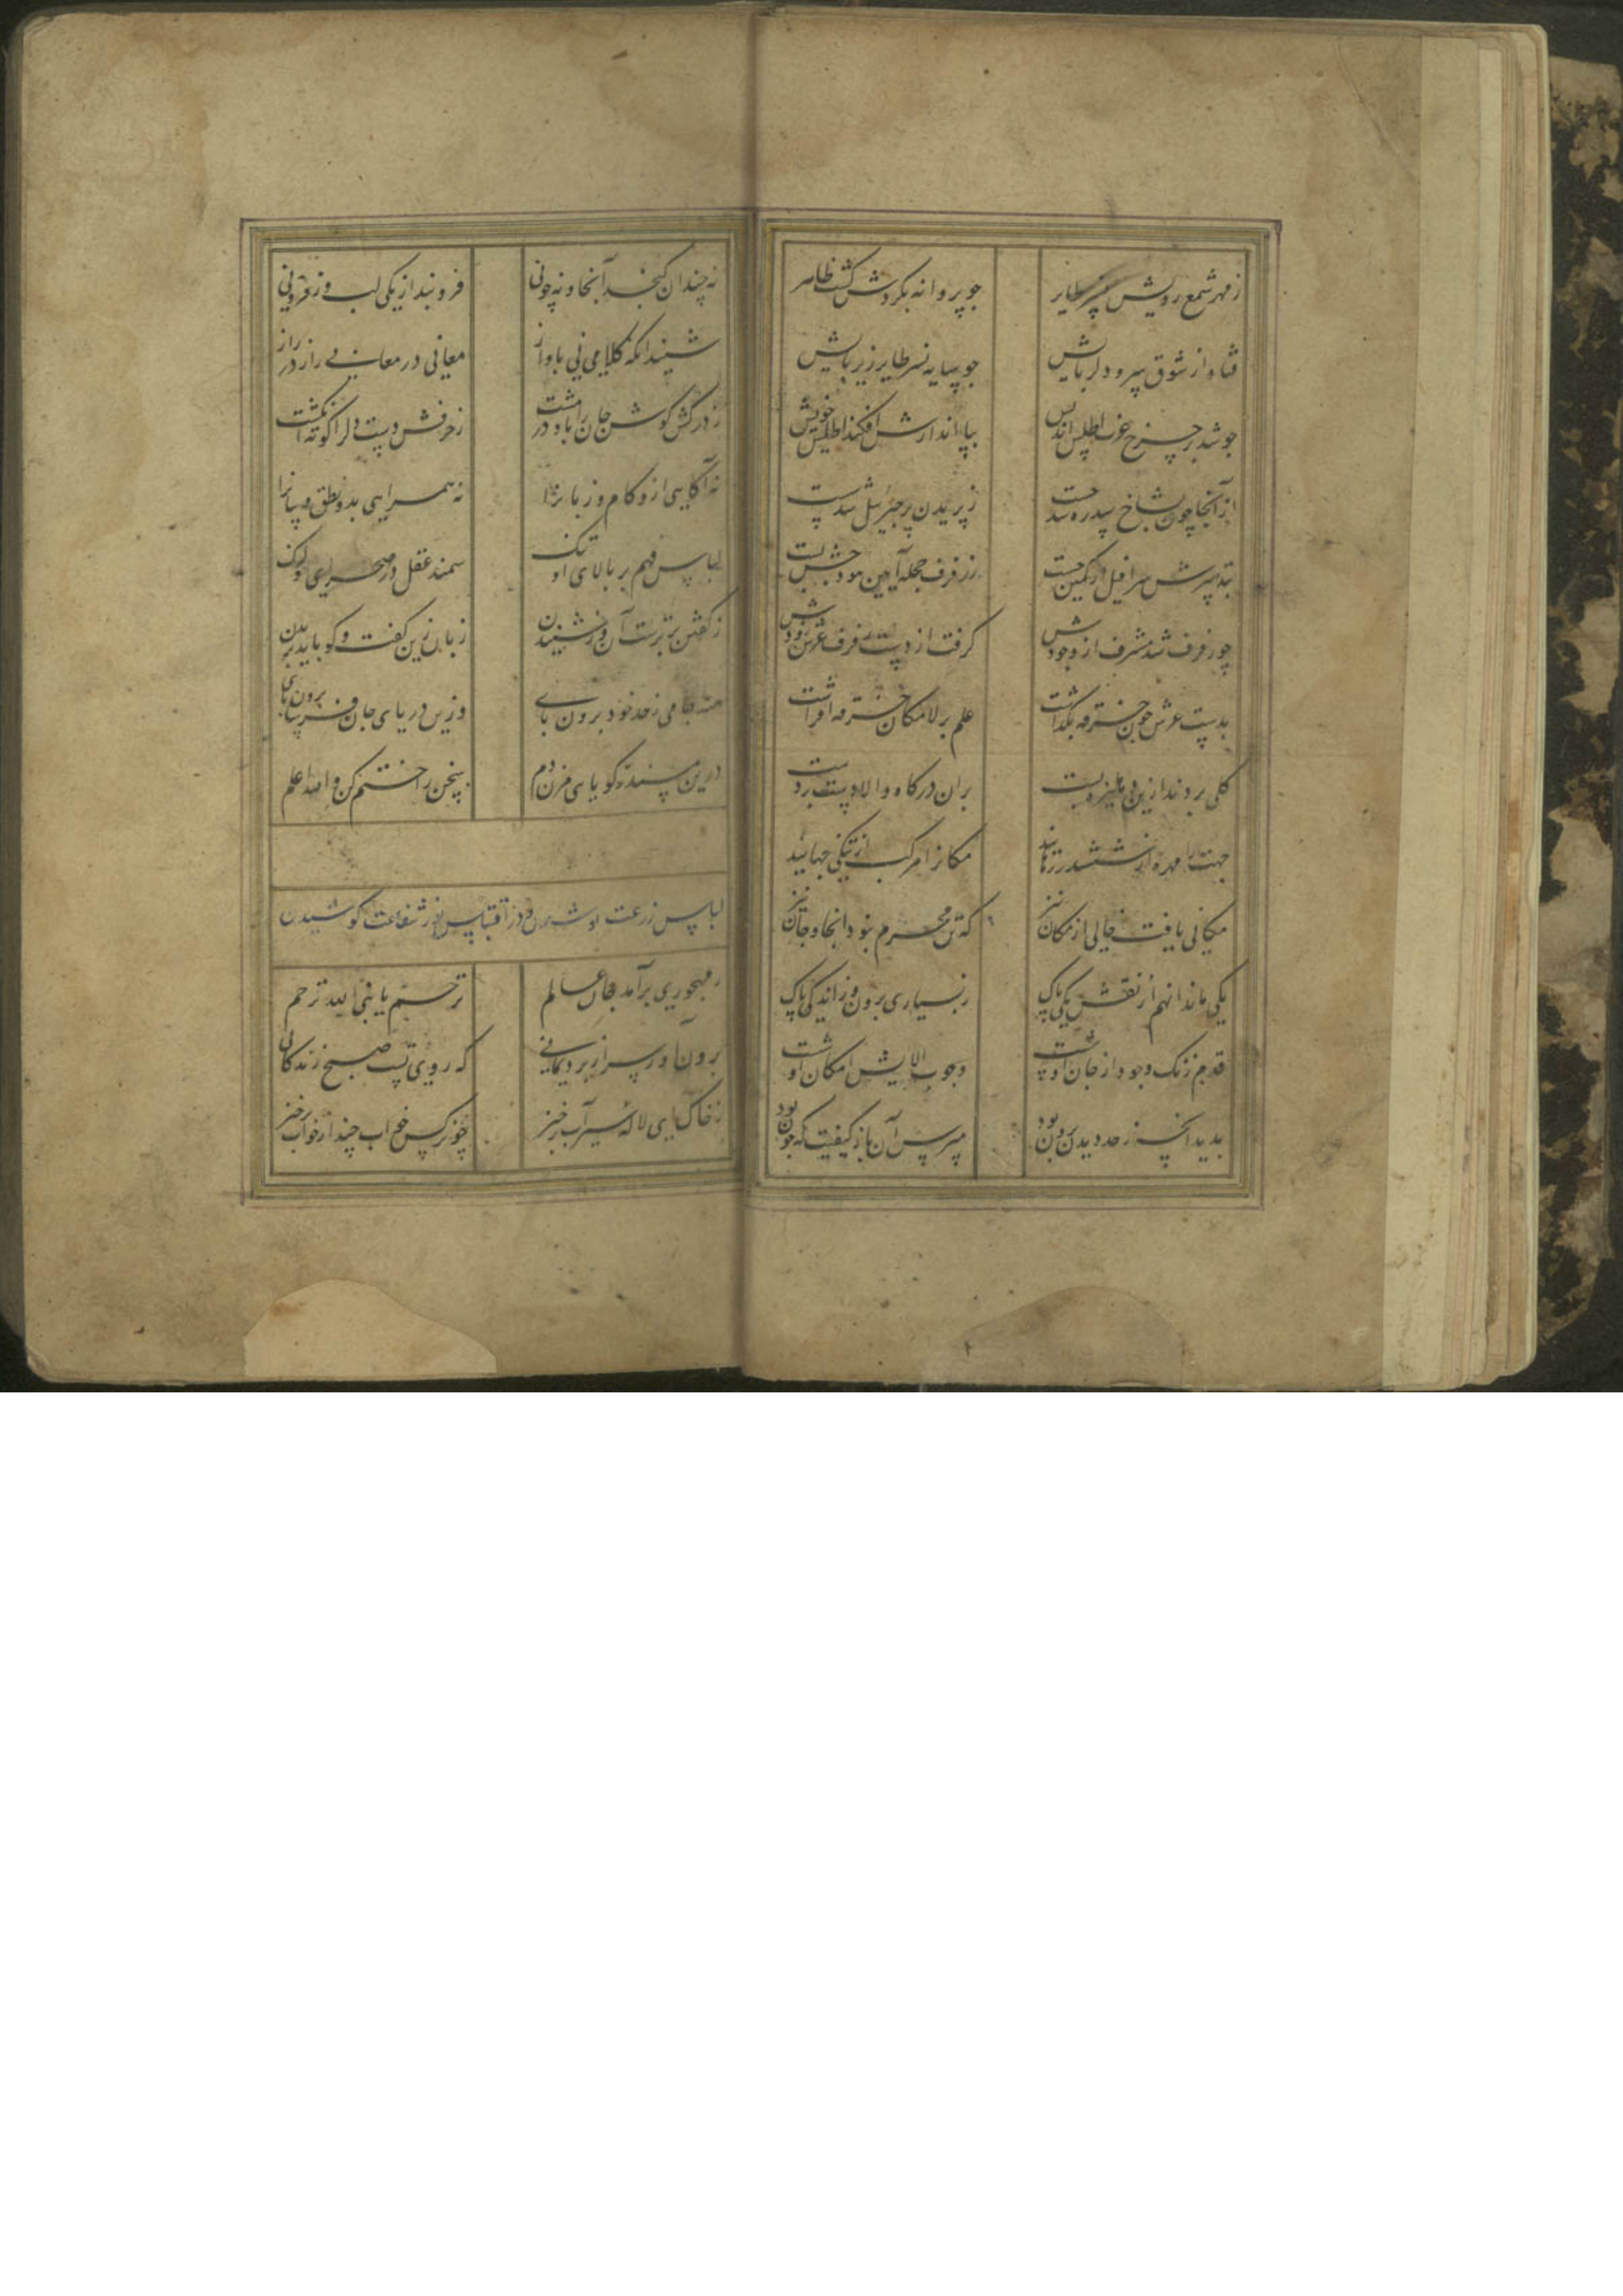 ز مهر شمع رویش نسر طایر جو پروانه بکردش کشت ظاهر
فتاد از شوق سرو دلربایش جو سایه نسر طایر زیر پایش
جو شد بر چرخ عرش اطلس اندیش بپا اندازش افکند اطلس خویش
از آنجا چون بشاخ سدره شد جست ز پریدن پر جبرئیل شد پست
بتدبیرش سرافیل از کمین جست ز رفرف حجله آیین هودجش بست
چو رفرف شد مشرف از وجودش کرفت از دست رفرف عرش زودش
بدست عرش جون خرقه بکذاشت علم بر لامکان خرقه افراشت
کلی بردند ازین دهلیزه پست بران درکاه والا دست بر دست
جهت را مهره از ششدر رهانید مکانرا مرکب از تنکی جهانید
مکانی یافت خالی از مکان نیز که تن محرم نبود آنجا و جان نیز
یکی ماند آنهم از نقش یکی پاک ز بسیاری برون وز اندکی پاک
قدم زنک وجود از جان او شست وجوب آلایش امکان او شست
بدید آنچه ز حد دیدن برون بود مپرس آن باز کیفیت که جون بود
نه چندان کنجد آنجا و نه چونی فرو بند از یکی لب وز فزونی
شنید آنکه کلامی نی باواز معانی در معانی راز در راز
ز درکش کوش جان را باد در مشت ز حرفش دست دل را کوته انکشت
نه آکاهی ازو کام و زبانرا نه همراهی بدو نطق و بیانرا
لباس فهم بر بالای او تنک سمند عقل در صحرای او لنک
ز کفتن برترست آن وز شنیدن زبان زین کفت و کو باید بریدن
منه جامی ز حد خود برون پای وزین دریای جان فرسا برون آی
درین مشهد ز کویایی مزن دم سخن را ختم کن والله اعلم
لباس زرعت پوشیدن و در اقتباس نور شفاعت کوشیدن
ز مهجوری برآمد جان عالم ترحم یا نبی الله ترحم
برون آور سر از برد یمانی که روی تست صبح زندکانی
ز خاک ای لاله سیراب برخیز چو نرکس خواب چند از خواب برخیز